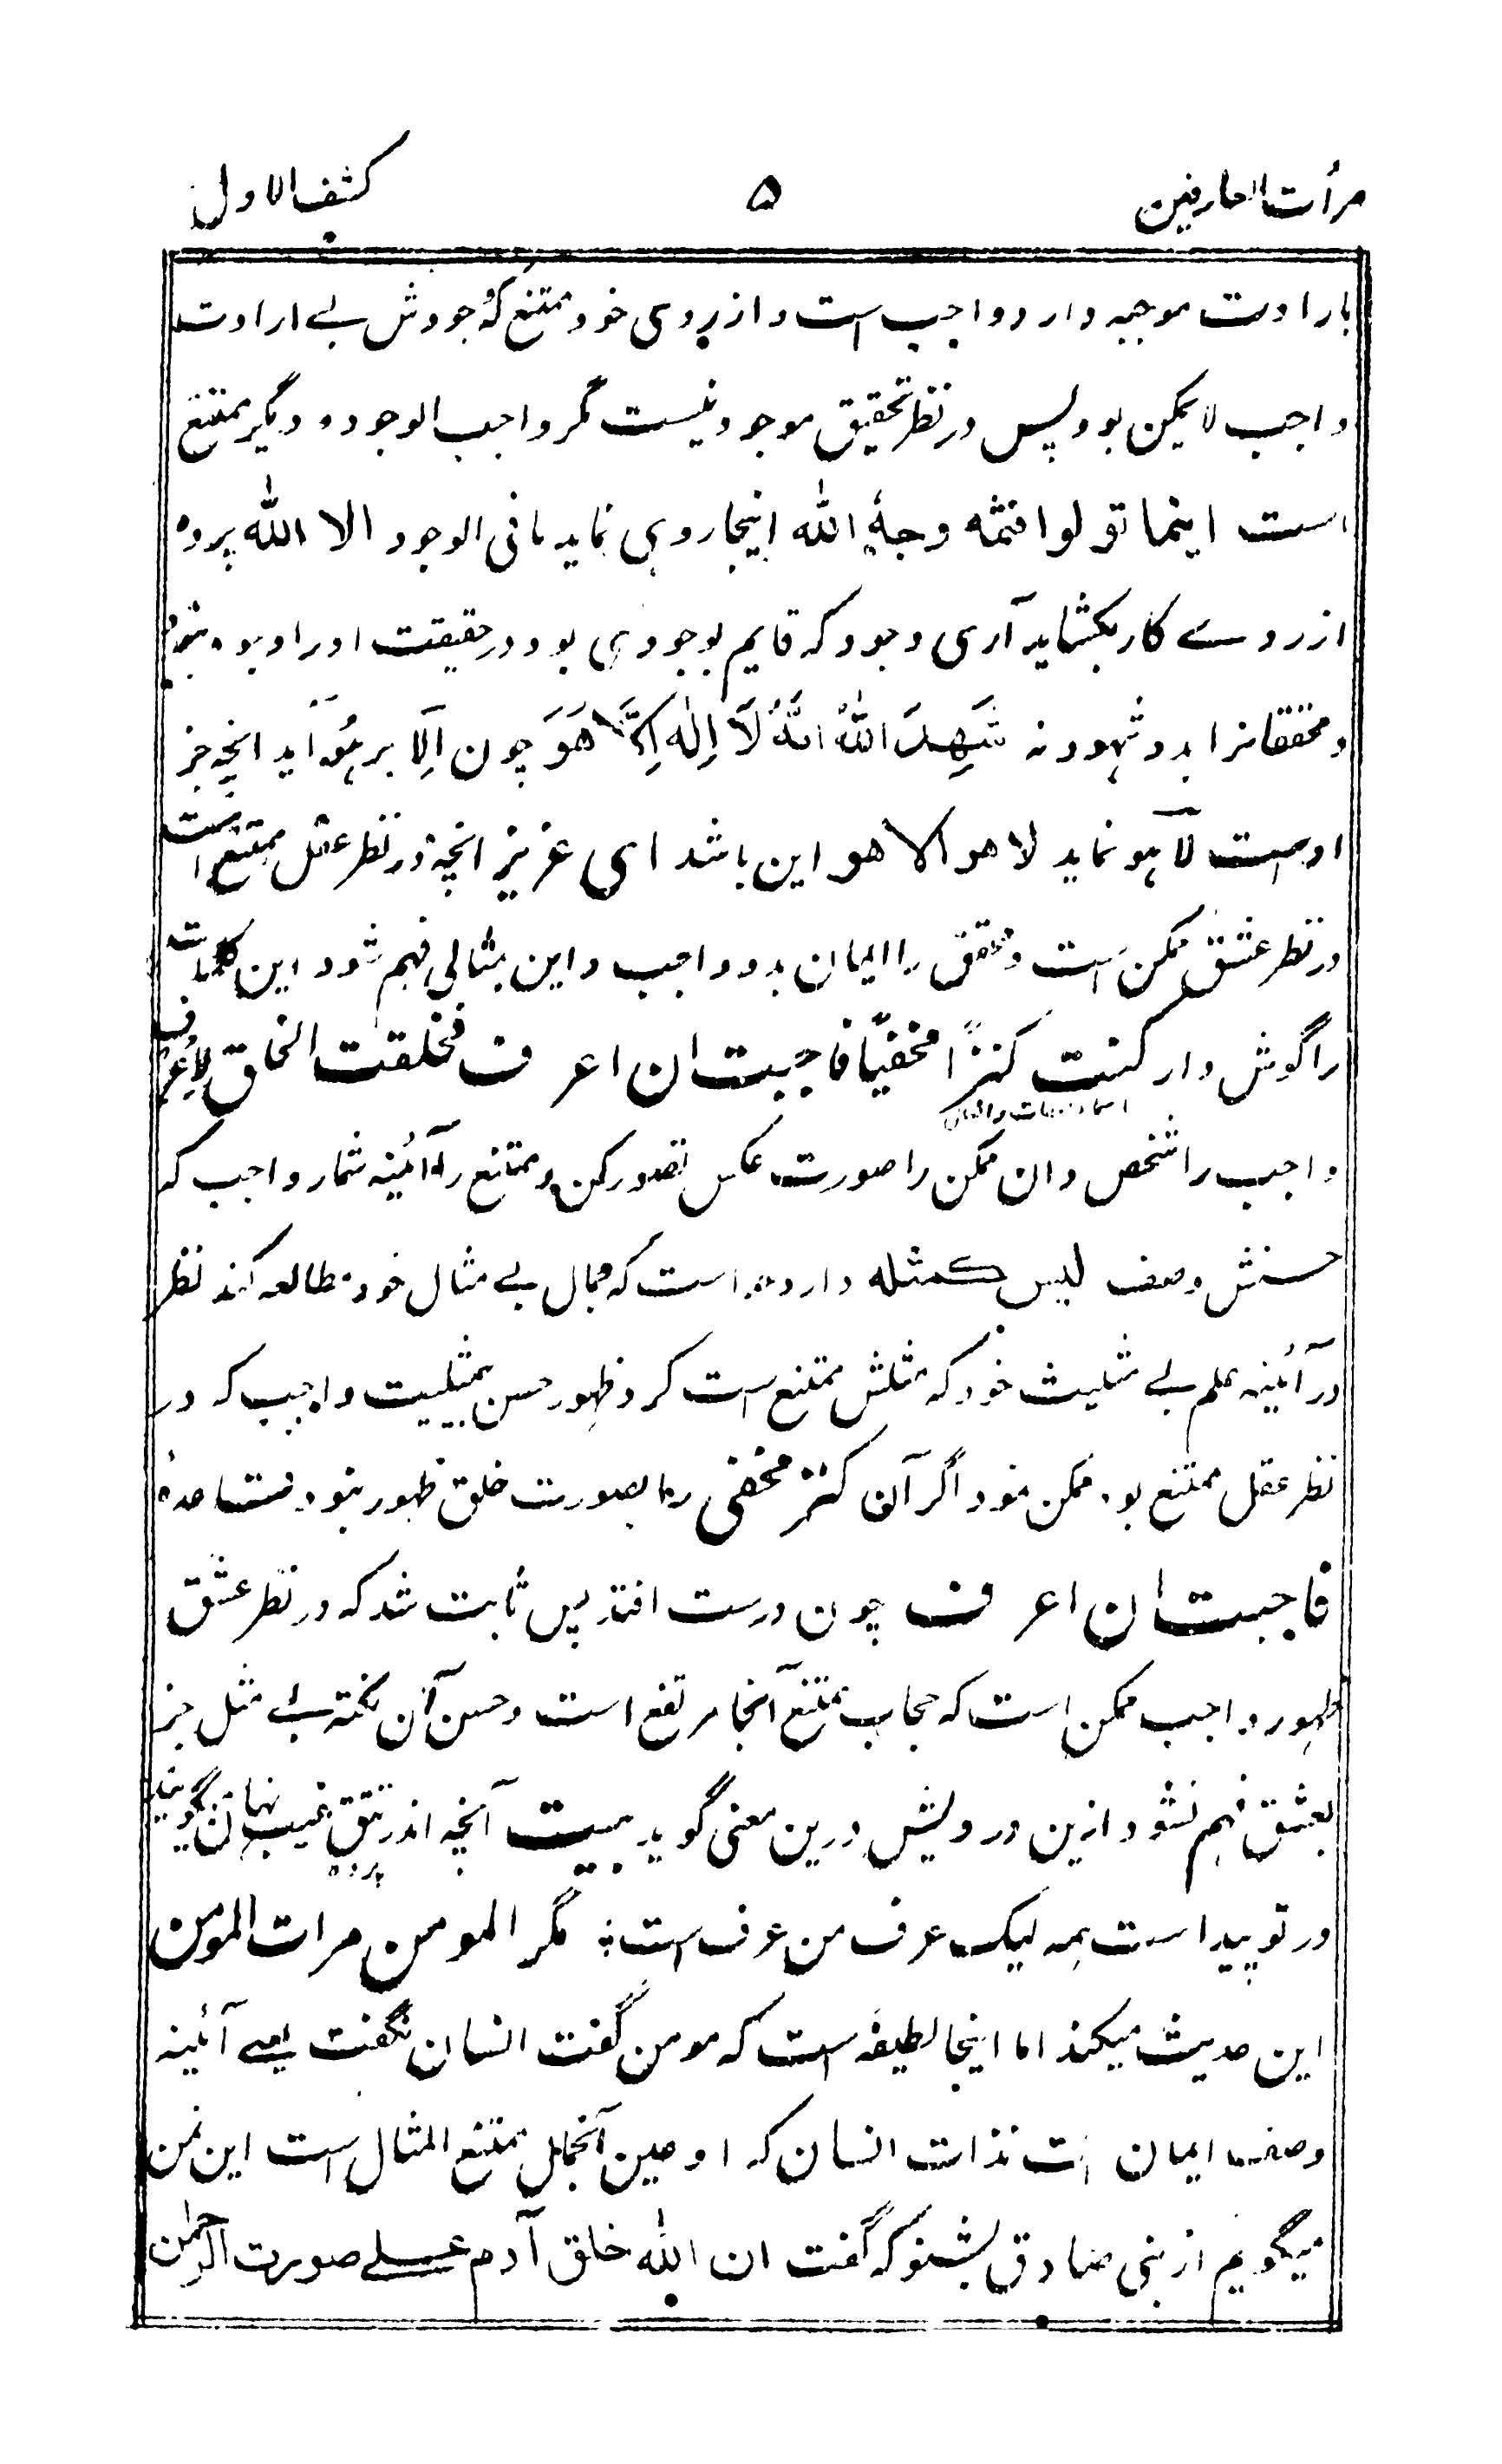 مرأت العارفین ۵ کشف الاول
بارادت موجبه دارد واجب است و از روی خود ممتنع که وجودش بے ارادت
واجب لایمکن بود پس در نظر تحقیق موجود نیست مگر واجب الوجود و دیگر ممتنع
است اینما تولوا فثمه وجهُ الله اینجا روی نماید ما فی الوجود الا الله پرده
از روے کار بکشاید آری وجود که قایم بوجودی بود در حقیقت او را وجود نبود
و محققانرا بدو شهود نه شَهِدَ اللهُ اَنَّهُ لَا اِلٰهَ اِلَّا هُوَ چون اِلَّا بر هُو آید انچه جز
اوست لا هو نماید لا هو الا هو این باشد ای عزیز انچه در نظر عقل ممتنع است
در نظر عشق ممکن است و محقق را ایمان بدو واجب و این بمثالی فهم شود این کلمات
را گوش دار کنت کنزًا مخفیًّا فاحببت ان اعرف فخلقت الخلق لِاُعرف
واجب را شخص دان ممکن را صورت عکس تصور کن و ممتنع را آئینه شمار واجب که
حسنش وصف لیس کمثله دارد است که جمال بے مثال خود مطالعه کند نظر
در آئینه علم بے مثلیت خود که مثلش ممتنع است کرد ظهور حسن بمثلیت واجب که در
نظر عقل ممتنع بود ممکن نمود اگر آن کنز مخفی را بصورت خلق ظهور نبود مشاهدهٔ
فاحببت ان اعرف چون درست افتد پس ثابت شد که در نظر عشق
ظهور واجب ممکن است که حجاب ممتنع آنجا مرتفع است و حسن آن نکته بے مثل جز
بعشق فهم نشود ازین درویش درین معنی گوید بیت آنچه اندر تتق غیب نهان گویند
پرده
در تو پیداست همه لیک عرف من عرف است ؛ مگر المومن مرات المومن
این حدیث میکند اما اینجا لطیفه است که مومن گفت انسان نگفت یعے آئینه
وصف ایمان است نه ذات انسان که او عین آنجمال ممتنع المثال است این نه من
میگویم از نبی صادق بشنو که گفت ان الله خلق آدم علے صورت الرحمٰن